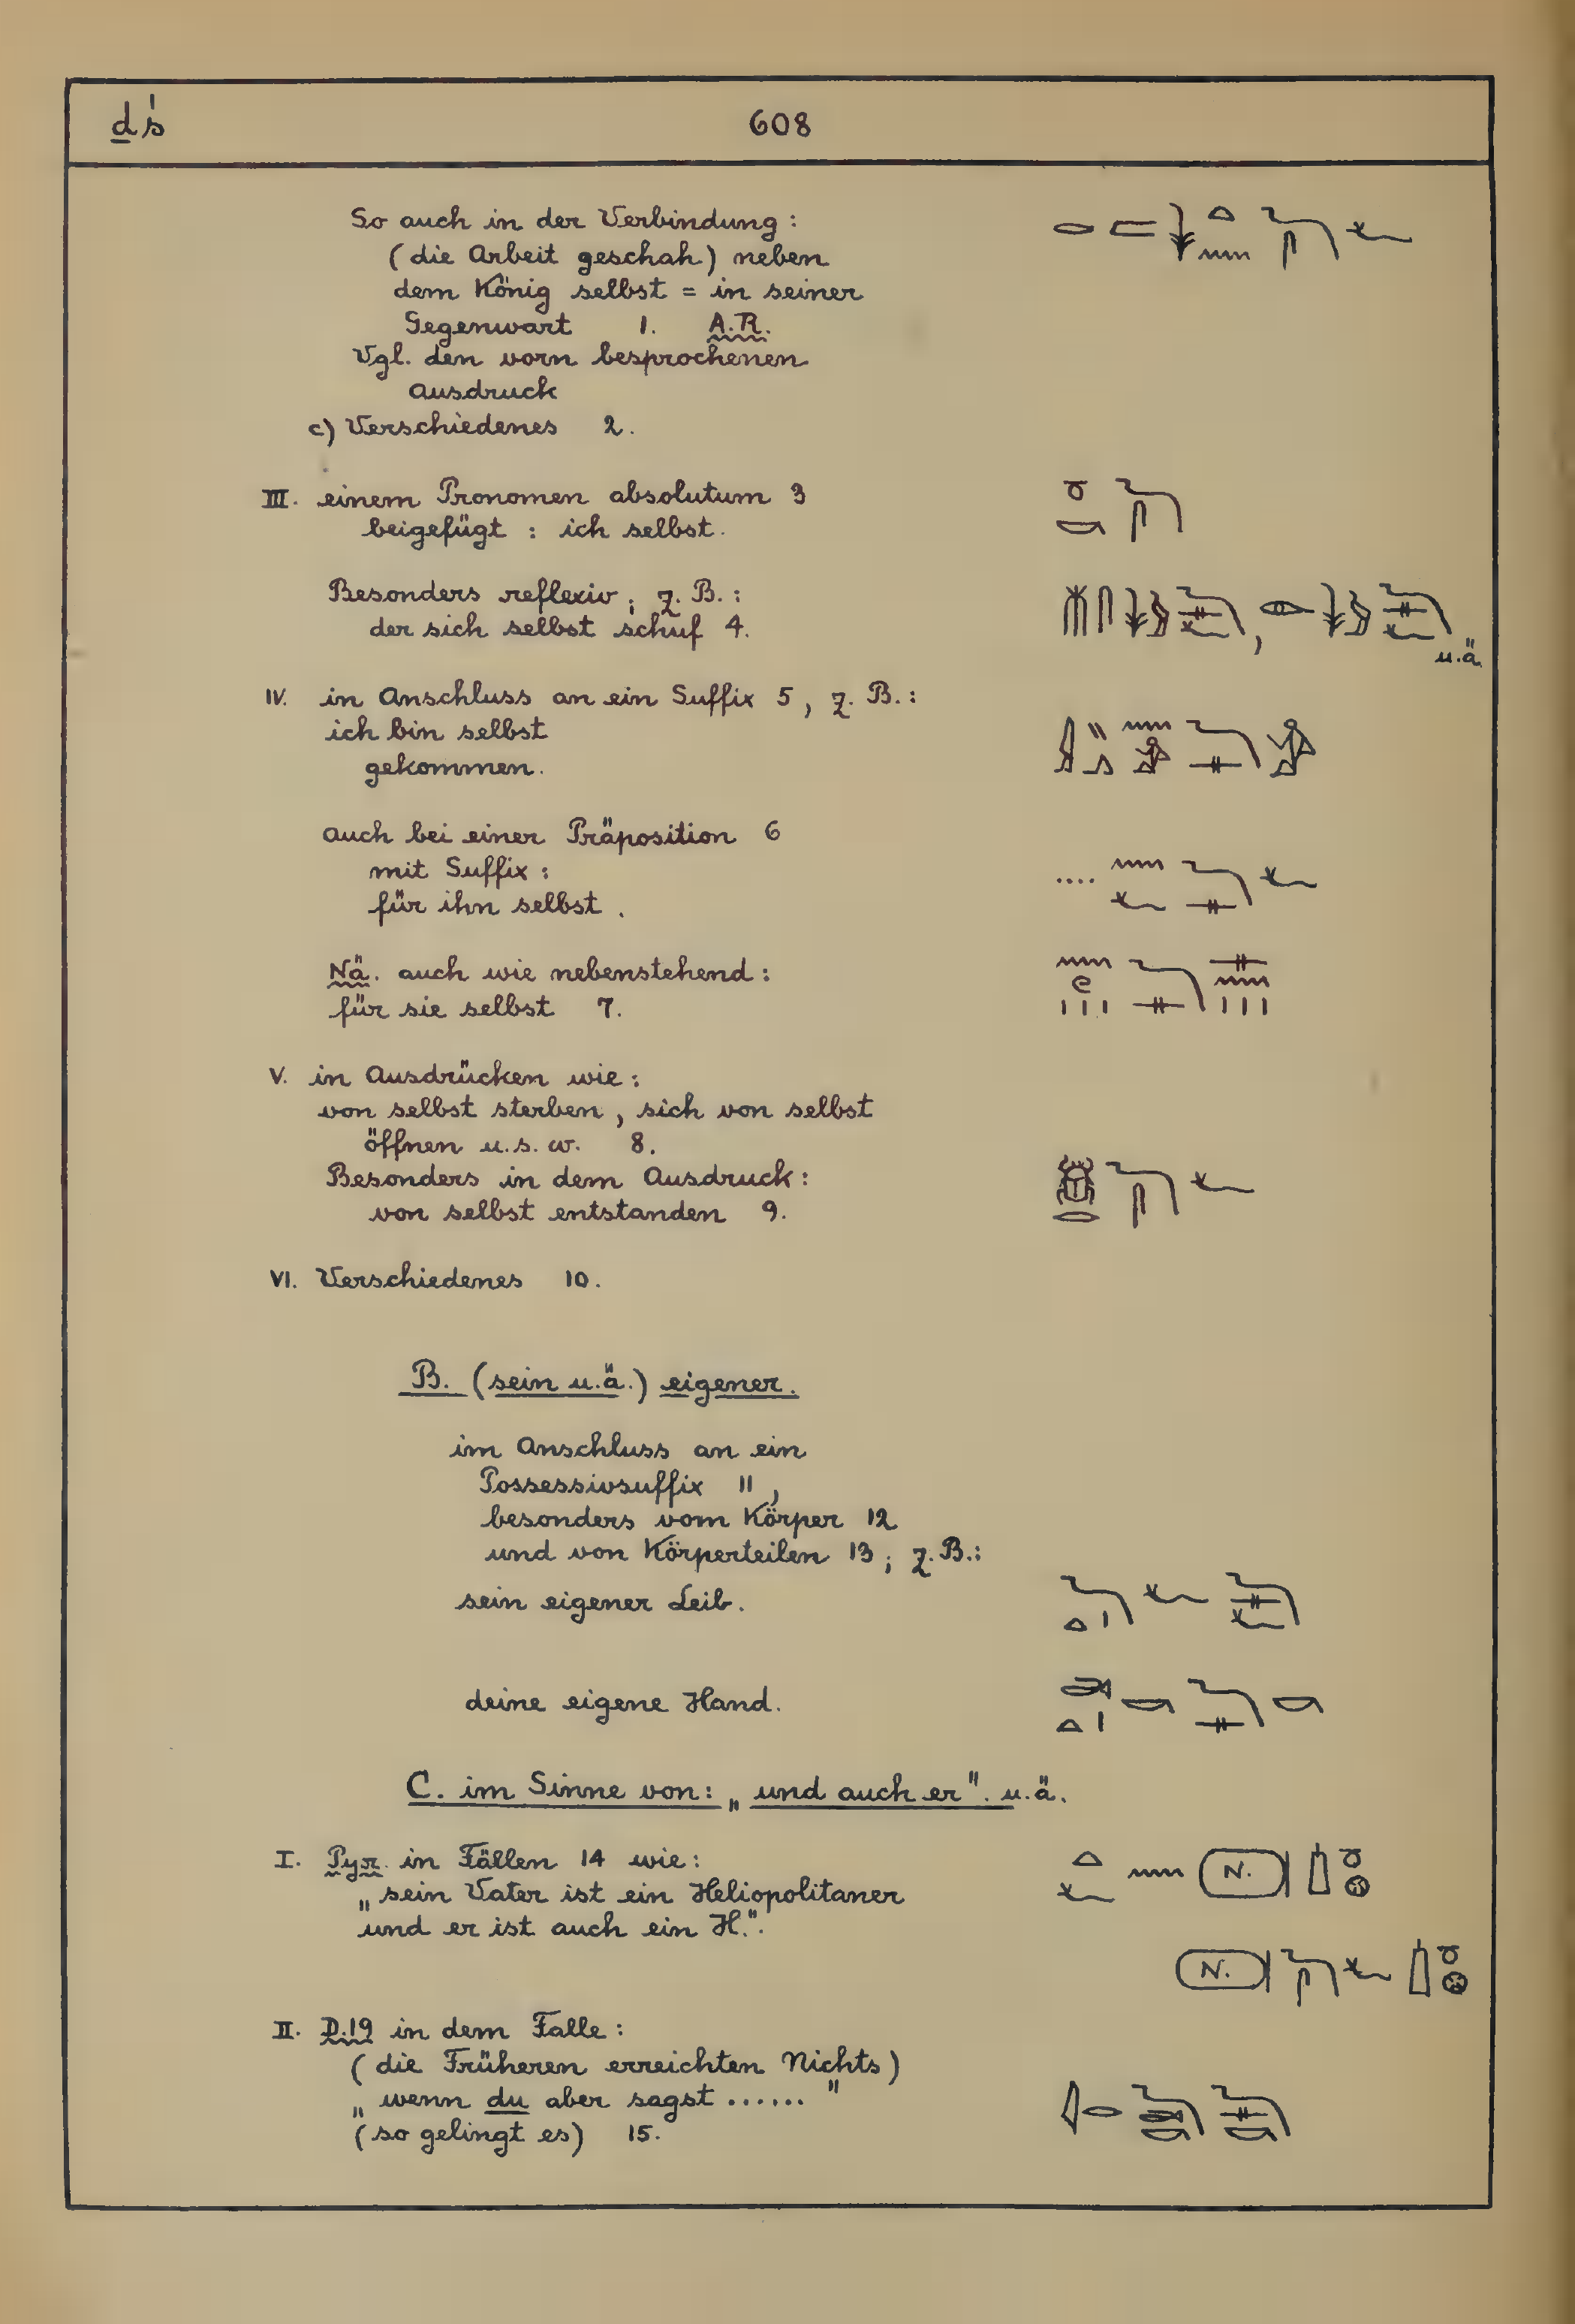 ḏś
608
So auch in der Verbindung:
(die Arbeit geschah) neben
dem König selbst = in seiner
Gegenwart 1. A.R.
Vgl. den vorn besprochenen
Ausdruck
c) Verschiedenes 2.
III. einem Pronomen absolutum 3
beigefügt: ich selbst.
Besonders reflexiv; z. B.:
der sich selbst schuf 4.
u.ä.
IV. in Anschluss an ein Suffix 5, z. B.:
ich bin selbst
gekommen.
auch bei einer Präposition 6
mit Suffix:
für ihn selbst.
....
Nä. auch wie nebenstehend:
für sie selbst 7.
V. in Ausdrücken wie:
von selbst sterben, sich von selbst
öffnen u.s.w. 8.
Besonders in dem Ausdruck:
von selbst entstanden 9.
VI. Verschiedenes 10.
B. (sein u.ä.) eigener.
im Anschluss an ein
Possessivsuffix 11,
besonders vom Körper 12
und von Körperteilen 13; z.B.:
sein eigener Leib.
deine eigene Hand.
C. im Sinne von: „und auch er". u.ä.
I. Pyr. in Fällen 14 wie:
„sein Vater ist ein Heliopolitaner
und er ist auch ein H.".
N.
N.
II. D.19 in dem Falle:
(die Früheren erreichten Nichts)
„wenn du aber sagst ......"
(so gelingt es) 15.